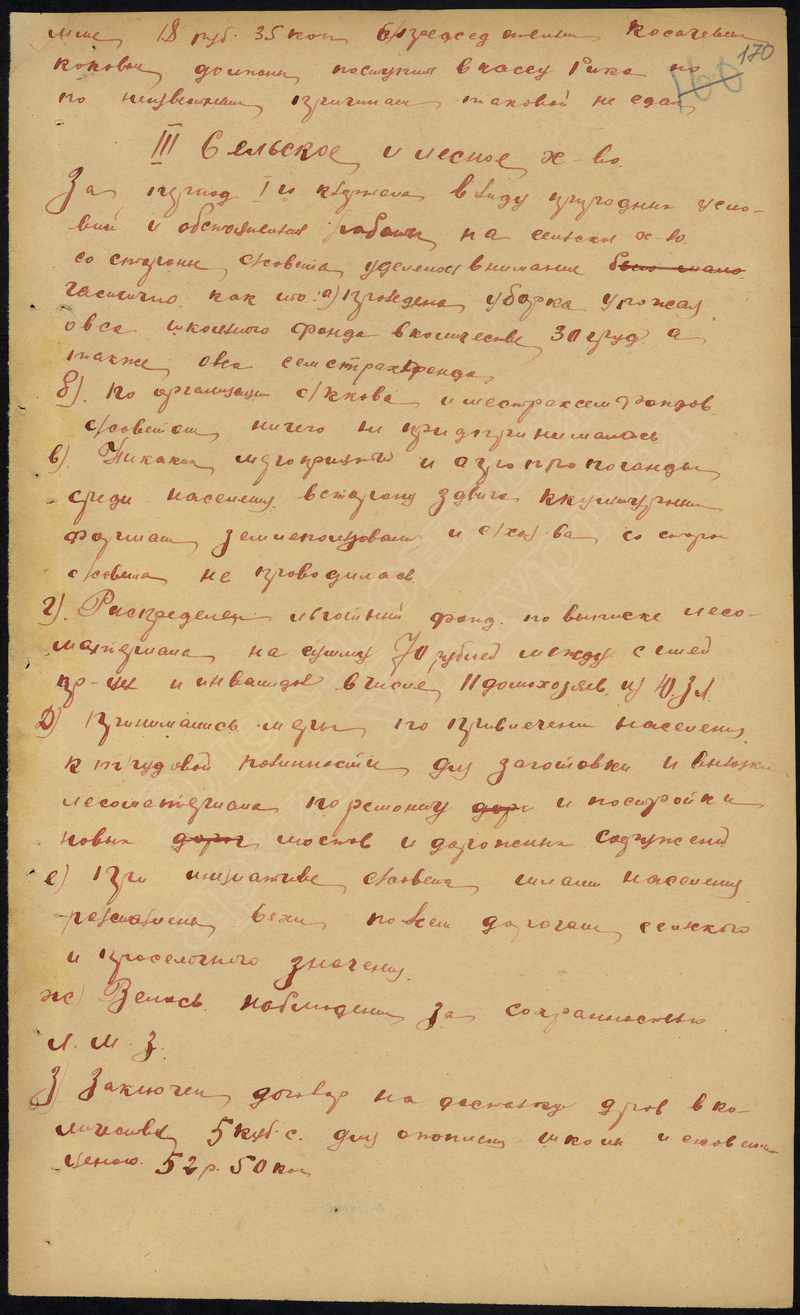 18 руб. 35 коп б/председателем Косачевым
170
160
каковые должны поступить в кассу Рика но
по неизвестным причинам таковой не сдал
III Сельское и лесное х-во.
За период I го к в виду природных усло-
вий и обстоятельств работы на сельск х-во
со стороны с/совета уделялось внимание было мало
частично как то: а) проведена уборка урожая
овса школьного фонда в количестве 30 пуд а
также овса семстрахфонда
б). По организации с/х и местрахсемфондов
с/советом ничего не предпринималось
в). Никаких мероприятий и агропропоганды
среди населения в сторону сдвига к культурным
формам землепользования и с/хоз-ва со стор
с/совета не проводилась
г). Распределен льготный фонд по выписке лесо-
материала на сумму 70 рублей между семей
кр-цк и инвалидов в числе 11 домохозяев из
д) Принимались меры по привлечению населения
к трудовой повинности для заготовки и вывозки
лесоматериала по ремонту дор и постройки
новых дорог мостов и дорожных сооружений
е) При инициативе с/совета силами населения
расставлены вехи по всем дорогам сельского
и проселочного значения.
ж) Велось наблюдение за сохранностью
Л. М. З.
з) Заключен договор на доставку дров в ко-
личестве 5 куб. с. для отопления школы и с/совета
ценою 52 р. 50 коп